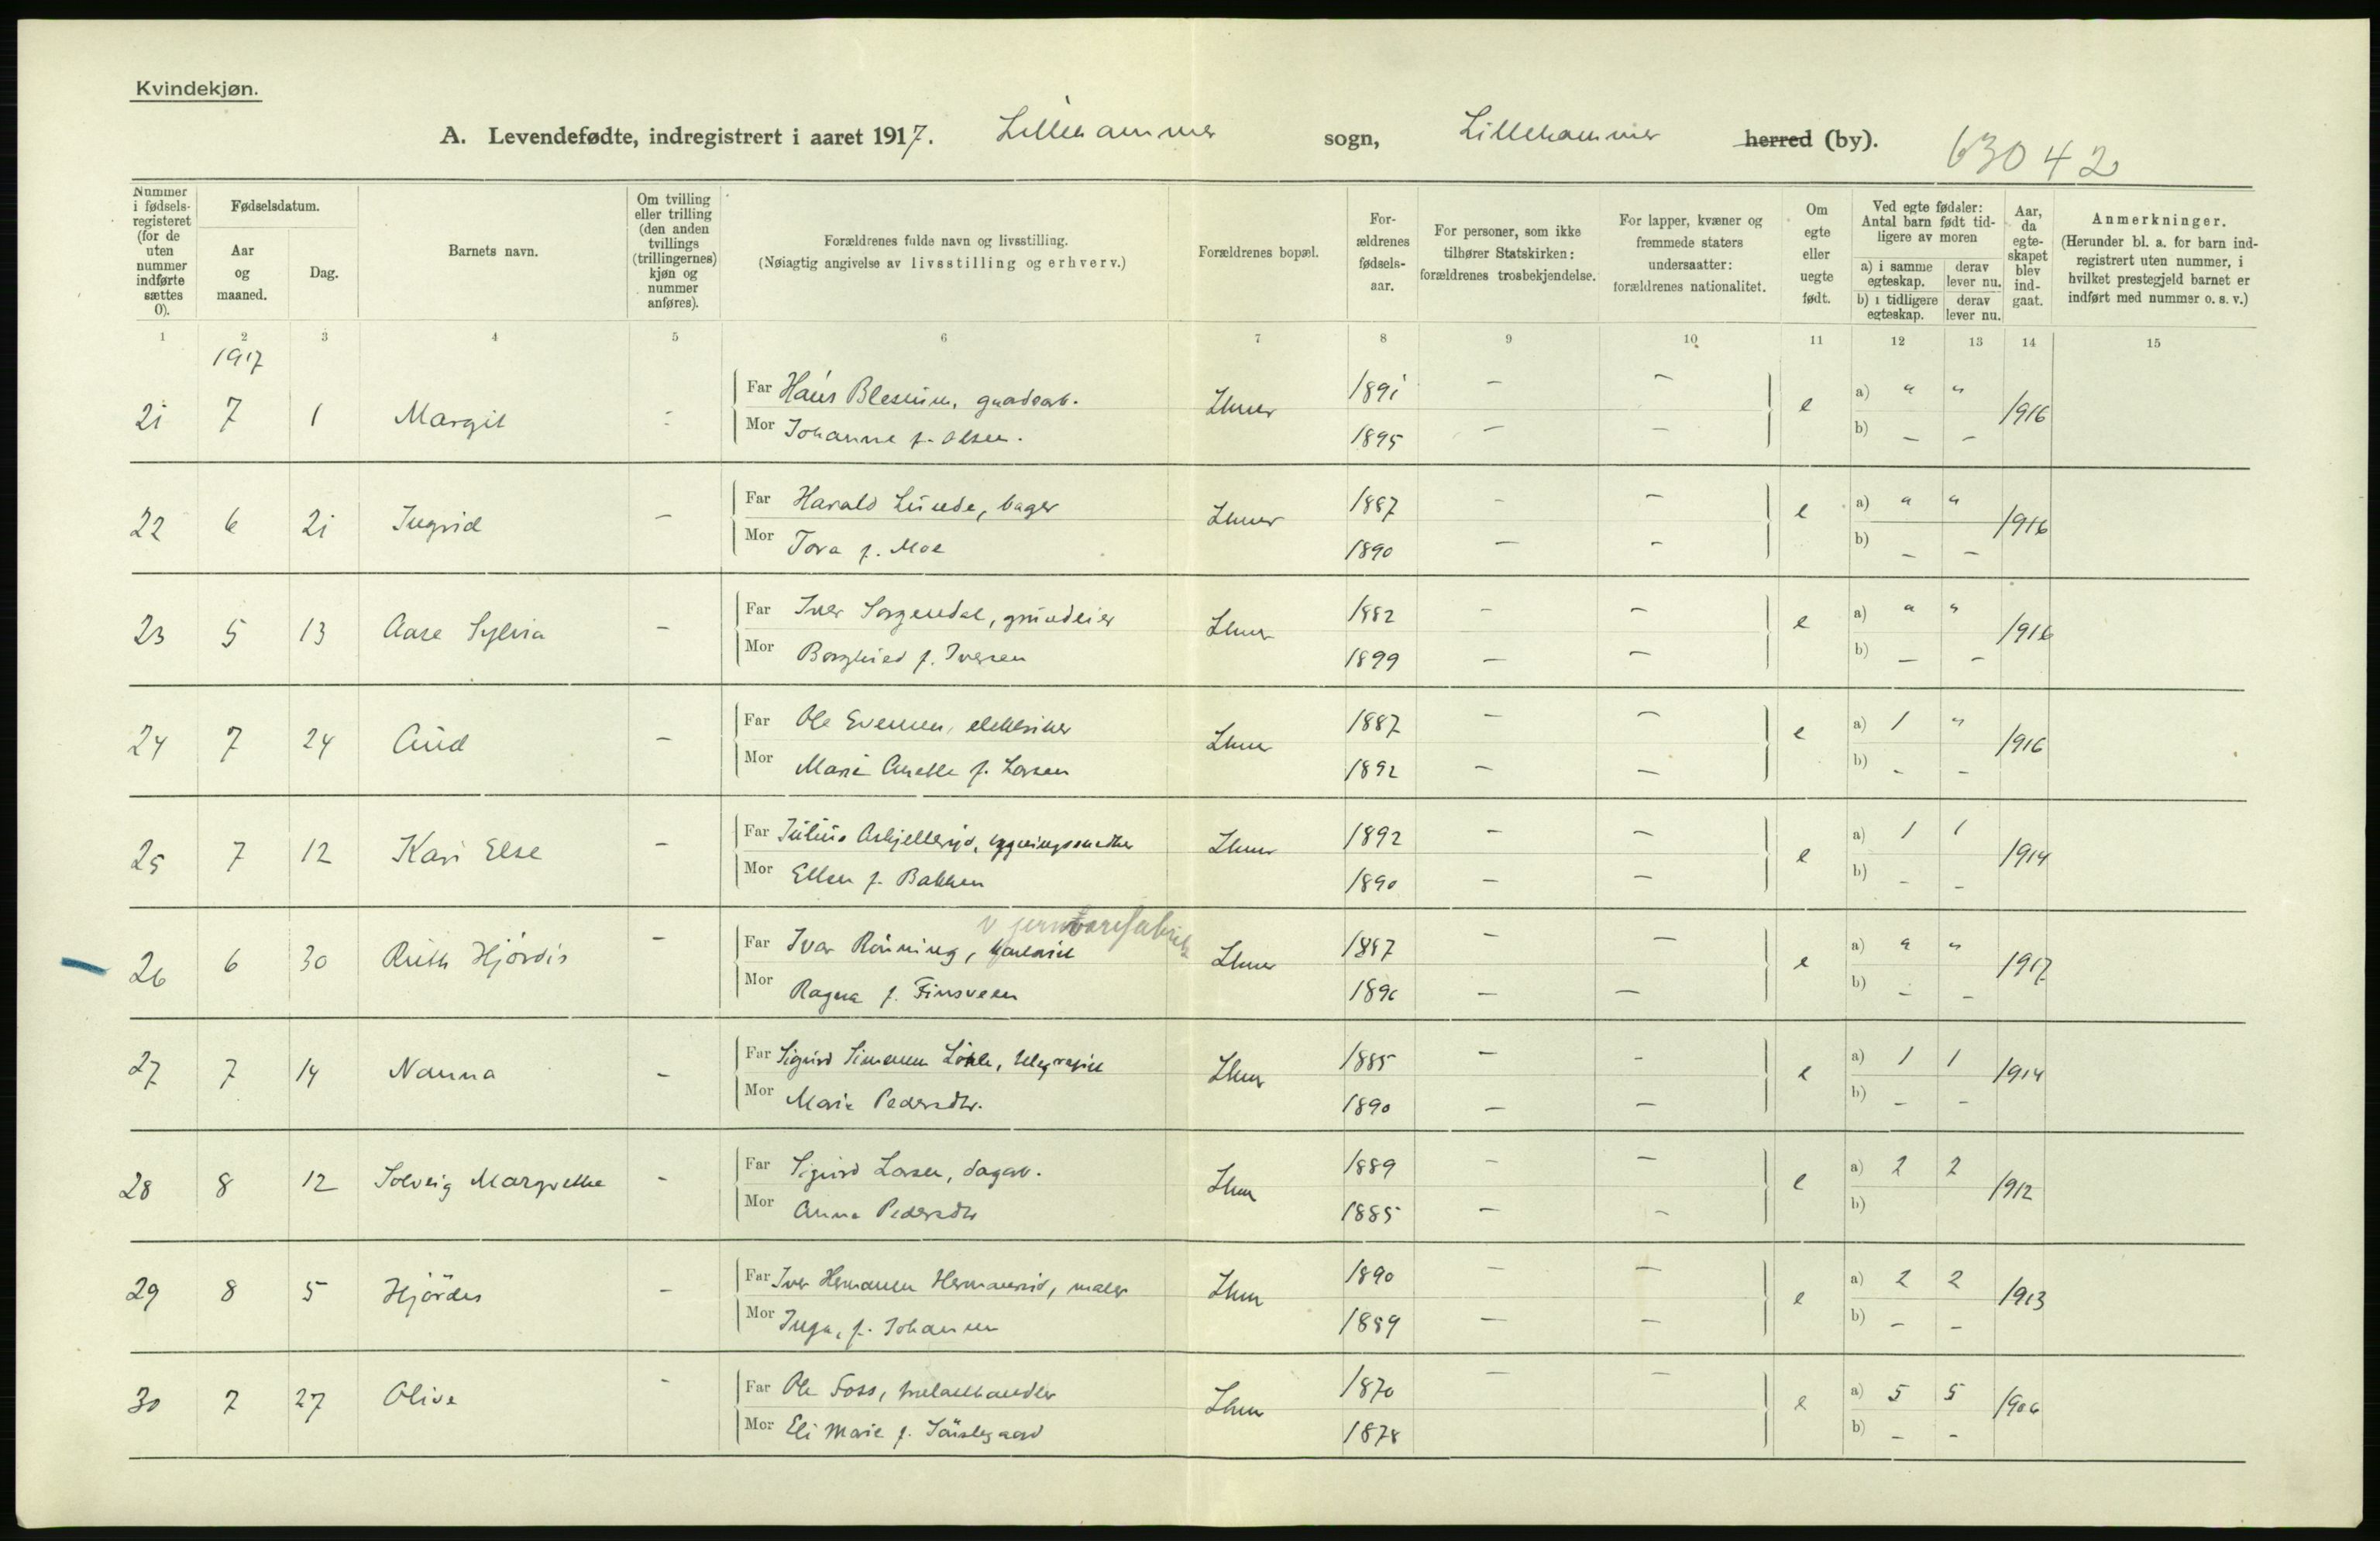 Kvindekjøn.
A. Levendefødte, indregistrert i aaret 1917. Lillehammer sogn, Lillehammer herred (by). 63042
Nummer i fødselsregisteret (for de uten nummer indførte sættes 0).
Fødselsdatum.
Aar og maaned.
Dag.
Barnets navn.
Om tvilling eller trilling (den anden tvillings (trillingernes) kjøn og nummer anføres).
Forældrenes fulde navn og livsstilling.
(Nøiagtig angivelse av livsstilling og erhverv.)
Forældrenes bopæl.
Forældrenes fødselsaar.
For personer, som ikke tilhører Statskirken: forældrenes trosbekjendelse.
For lapper, kvæner og fremmede staters undersaatter: forældrenes nationalitet.
Om egte eller uegte født.
Ved egte fødsler: Antal barn født tidligere av moren
a) i samme egteskap. derav lever nu.
b) i tidligere egteskap. derav lever nu.
Aar, da egteskapet blev indgaat.
Anmerkninger.
(Herunder bl. a. for barn indregistrert uten nummer, i hvilket prestegjeld barnet er indført med nummer o. s. v.)
1 2 3 4 5 6 7 8 9 10 11 12 13 14 15
1917
21 7 1 Margit - Far Hans Blesium, Lhmr 1891 — — e a) " " 1916
Mor Johanne f. Olsen. 1895 — — b) — —
22 6 21 Ingrid — Far Harald Lunde, bager Lhmr 1887 - — e a) " " 1916
Mor Tora f. Moe 1890 — - b) — —
23 5 13 Aase Sylvia — Far Iver Sorgendal, grundeier Lhmr 1882 - — e a) " " 1916
Mor Borghild f. Iversen 1899 — — b) — —
24 7 24 Aud — Far Ole Evensen, elektriker Lhmr 1887 — — e a) 1 " 1916
Mor Marie Anette f. Larsen 1892 — — b) - -
25 7 12 Kari Else — Far Julius Lhmr 1892 — — e a) 1 1 1914
Mor Ellen f. Bakken 1890 — — b) - -
v jernvarefabrik
26 6 30 Ruth Hjördis — Far Ivar Rönning, kontorist Lhmr 1887 — — e a) " " 1917
Mor Ragna f. Finsveen 1896 — — b) - -
27 7 14 Nanna — Far Sigurd Simensen telegrafist Lhmr 1885 — - e a) 1 1 1914
Mor Marie Pedersdtr. 1890 — — b) - -
28 8 12 Solveig Margrethe - Far Sigurd Larsen, dagarb. Lhmr 1889 — — e a) 2 2 1912
Mor Anna Pedersdtr 1885 — — b)
29 8 5 Hjördis - Far Iver Hermansen Hermansrud, maler Lhmr 1890 — — e a) 2 2 1913
Mor Inga, f. Johansen 1889 — — b) - -
30 7 27 Olive - Far Ole Foss, trelasthandler Lhmr 1870 — — e a) 5 5 1906
Mor Eli Marie f. 1878 b) — -